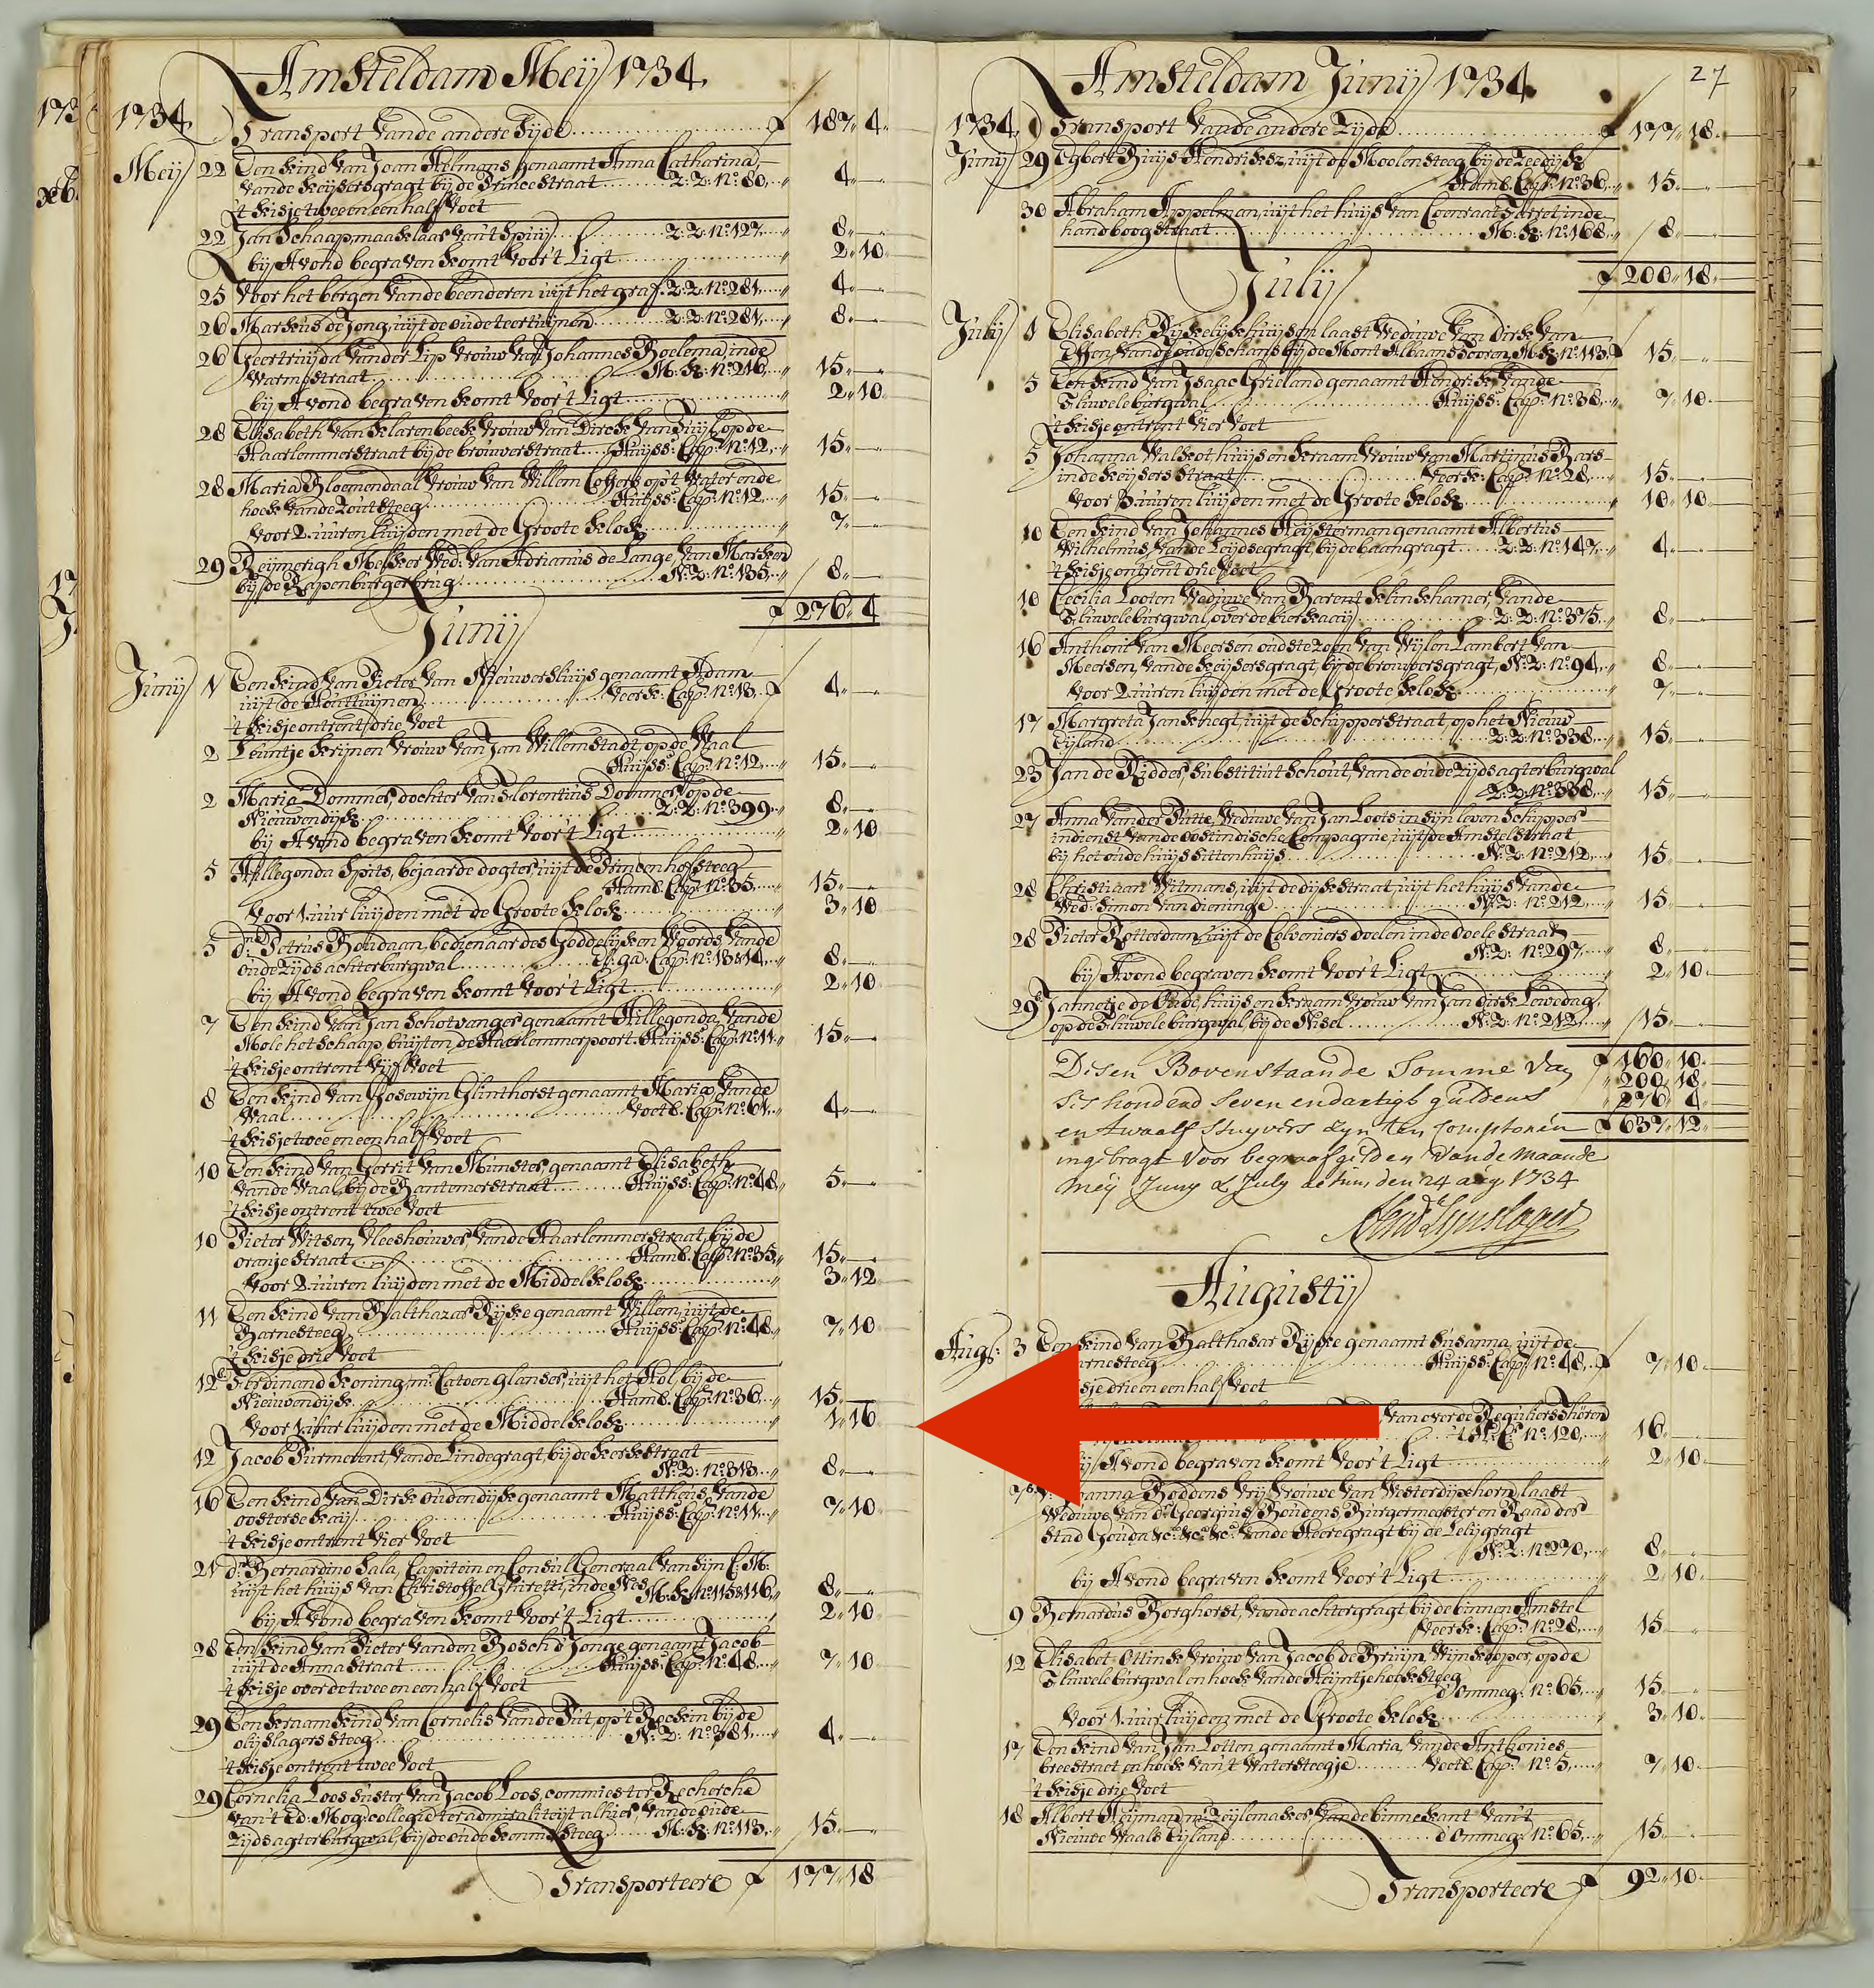 Amsteldam Meij 1734
1734 Transport Vande andere Zijde f 187 4
Meij 22 Een kind Van Joan Helmans, genaamt Anna Catharina,
Vande Keijsersgragt bij de Princestraat Z:Z: nº: 80 4
't kisje twee en een half Voet
22 Jan Schaap, maakelaar, Van't Spuij Z:Z: nº 127 8
bij Avond begraven komt Voor't Ligt 2 10
25 Voor het bergen Vande beenderen uijt het graf Z:Z: nº 281 4
26 Markus de Jong, uijt de oude teertuijnen Z:Z: nº 281 8
26 Geertruijda Vander Lip Vrouw Van Johannes Boelema, inde
Warmostraat M:K: nº 216 15
bij Avond begraven komt Voor't Ligt 2 10
28 Elisabeth Van Klarenbeek Vrouw Van Dirck Van Zuijl, op de
Haarlemmerstraat bij de brouwerstraat Huijss: Cap: nº: 12 15
28 Maria Bloemendaal Vrouw Van Willem op't Water ende
hoek Vande Zoutsteeg Huijss: Cap: nº 12 15
Voor 2 uuren luijden met de Groote klok 7
29 Reijmerigh Melker Wed: Van Adrianus de Lange, Van Marken
bij de Rapenburgerbrug N:Z: nº 135 8
f 276 4
Junij
Junij 1 Een kind Van Pieter Van Nieuwersluijs genaamt Adam
uijt de Houttuijnen Veerk: Cap: nº 13 f 4
't kisje ontrent drie Voet
2 Leuntje Krijnen Vrouw Van Jan Willemstadt, op de Waal
Huijss: Cap: nº 12 15
2 Maria Dommer, dochter Van Florentius Dommer, op de
Nieuwendijk Z:Z: nº 399 8
bij Avond begraven komt Voor't Ligt 2 10
5 Hillegonda Spits, bejaarde dogter, uijt de Princenhofsteeg
Hamb: Cap: nº 35 15
Voor 1 uur luijden met de Groote klok 3 10
5 dº: Petrus Boudaan, bedienaar des Goddelijken Woords, Vande
oude Zijds achterburgwal Cap: nº 13&14 8
bij Avond begraven komt Voor't Ligt 2 10
7 Een kind Van Jan Schotvanger genaamt Hillegonda, Vande
Mole het Schaap, buijten de Haerlemmerpoort Huijss: Cap: nº 11 15
't kisje ontrent Vijf Voet
8 Een kind Van Gosewijn Glinthorst genaamt Maria, Vande
Waal Voetb: Cap: nº 61 4
't kisje twee en een half Voet
10 Een kind Van Gerrit Van Munster, genaamt Elisabeth,
Vande Waal, bij de Bantemerstraat Huijss: Cap: nº 48 5
't kisje ontrent twee Voet
10 Pieter Witsen, Vleeshouwer, Vande Haarlemmerstraat, bij de
oranje Straat Hamb: Cap: nº 35 15
Voor 2 uuren luijden met de Middel klok 3 12
11 Een kind Van Balthazar Rijke genaamt Willem, uijt de
Barnesteeg Huijss: Cap: nº 48 7 10
't kisje drie Voet
12 Ferdinand Koning, mr: Catoen glanser, uijt het Hol, bij de
Nieuwendijk Hamb: Cap: nº 36 15
Voor 1 uur luijden met de Middel klok 1 16
12 Jacob Purmerent, Vande Lindegragt, bij de kerkstraat
N:Z: nº 313 8
16 Een kind Van Dirk Oudendijk genaamt Mattheus, Vande
oosterse kaij Huijss: Cap: nº 11 7 10
't kisje ontrent Vier Voet
21 dº: Bernardino Sala, Capitein en Consul Generaal Van Sijn C:M:
uijt het huijs Van Christoffel Ghiretti, inde Nes M:K: nº 115&116 8
bij Avond begraven komt Voor't Ligt 2 10
28 Een kind Van Pieter Vanden Bosch d'Jonge genaamt Jacob
uijt de Anna Straat Huijss: Cap: nº 48 7 10
't kisje over de twee en een half Voet
29 Een kraam kind Van Cornelis Vande Put, op't Rockin bij de
olijslagers steeg N:Z: nº 381 4
't kisje ontrent twee Voet
29 Cornelia Loos, suster Van Jacob Loos, commies ter Recherche
Van't Ed: Mog: collegie ter admiraliteijt alhier, Vande oude
Zijds agterburgwal, bij de oude kennis steeg M:K: nº 113 15
Transporteere f 177 18
27
Amsteldam Junij 1734
1734 Transport Vande andere Zijde f 177 18
Junij 29 Egbert Buijs Hendriksz, uijt de Moolensteeg, bij de Zeedijk
Hamb: Cap: nº 36 15
30 Abraham Appelman, uijt het huijs Van Coenraat inde
handboogstraat M:K: nº 168 8
f 200 18
Julij
Julij 1 Elisabeth Rijkelijkhuijsen laast Weduwe Van Dirk Van
Vande oude Schans bij de Mont Albaans tooren M:K: nº 113 f 15
5 Een kind Van Isaac Grieland genaamt Hendrik, Vande
Fluwele burgwal Huijss: Cap: nº 38 7 10
't kisje ontrent Vier Voet
5 Johanna Walkot huijs en kraam Vrouw Van Martinus Bars
inde keijsers straat Veerk: Cap: nº 28 15
Voor 3 uuren luijden met de Groote klok 10 10
10 Een kind Van Johannes Heijsterman genaamt Albertus
Wilhelmus, Vande Leijdsegragt, bij de baangragt Z:Z: nº 147 4
't kisje ontrent drie Voet
10 Cecilia Looten Weduwe Van Barent Klinkhamer, Vande
Fluwele burgwal, over de bierkaaij Z:Z: nº 375 8
16 Anthoni Van Meersen oudste zoon Van Wijlen Lambert Van
Meersen, Vande keijsersgragt, bij de brouwersgragt, N:Z: nº 94 8
Voor 2 uuren luijden met de Groote klok 7
17 Margreta Jansk hegt, uijt de Schipperstraat, op het Nieuw
Eijland Z:Z: nº 338 15
23 Jan de Ridder, Substituut Schout, Vande oude zijds agterburgwal
Z:Z: nº 338 15
27 Anna Vander Putte, Weduwe Van Jan Loots in sijn leven Schipper
in dienst Vande oostindische Compagnie, uijt de Amstelstraat
bij het oude huijssittenhuijs N:Z: nº 212 15
28 Christiaan Witmans, uijt de dijkstraat, uijt het huijs Vande
Wed: Simon Van dieninge N:Z: nº 212 15
28 Pieter Rotterdam, uijt de Colveniers doelen inde doele straat
N:Z: nº 297 8
bij Avond begraven komt Voor't Ligt 2 10
29 Jannetje de Bude, huijs en kraam Vrouw Van Jan dirk Lewedag,
op de Fluwele burgwal, bij de Nisel N:Z: nº 212 15
Desen Bovenstaande Somme Van f 160 10
ses hondend Seven en dartigh guldens 200 18
276 4
en twaalf stuyvers zyn ten Comptoiren f 637 12
ingebragt voor begraafgelden Vande maande
Meij Juny & July actum, den 24 aug 1734
Augustij
Augs: 3 Een kind Van Balthasar Rijke genaamt Susanna, uijt de
arnesteeg Huijss: Cap: nº 48 f 7 10
sje drie en een half Voet
Van over de Reguliers Thoren
nº 120 16
Avond begraven komt Voor't Ligt 2 10
7 anna Boddens Vrij Vrouwe Van Westerdijxhorn, laast
Weduwe Van dº Georgius Boudens, Burgermeester en Raad der
Stad Gouda &cª &cª &cª Vande Heeregragt bij de Lelijgragt
N:Z: nº 270 8
bij Avond begraven komt Voor't Ligt 2 10
9 Bernardus Borghorst, Vande achtergragt bij de binnen Amstel
Veerk: Cap: nº 28 15
12 Elisabet Ottink Vrouw Van Jacob de Bruijn, Wijnkooper, op de
Fluwele burgwal en hoek Vande Heijntje hoeksteeg
d'ommeg: nº 65 15
Voor 1 uur luijden met de Groote klok 3 10
17 Een kind Van Jan Lotten genaamt Maria, Vande Anthonies
breestraet en hoek Van't Watersteegje Voetb: Cap: nº 5 7 10
't kisje drie Voet
18 Albert Heijman, mr: Zeijlemaker, Vande binnekant Van't
Nieuwe Waals Eijland d'ommeg: nº 65 15
Transporteere f 92 10